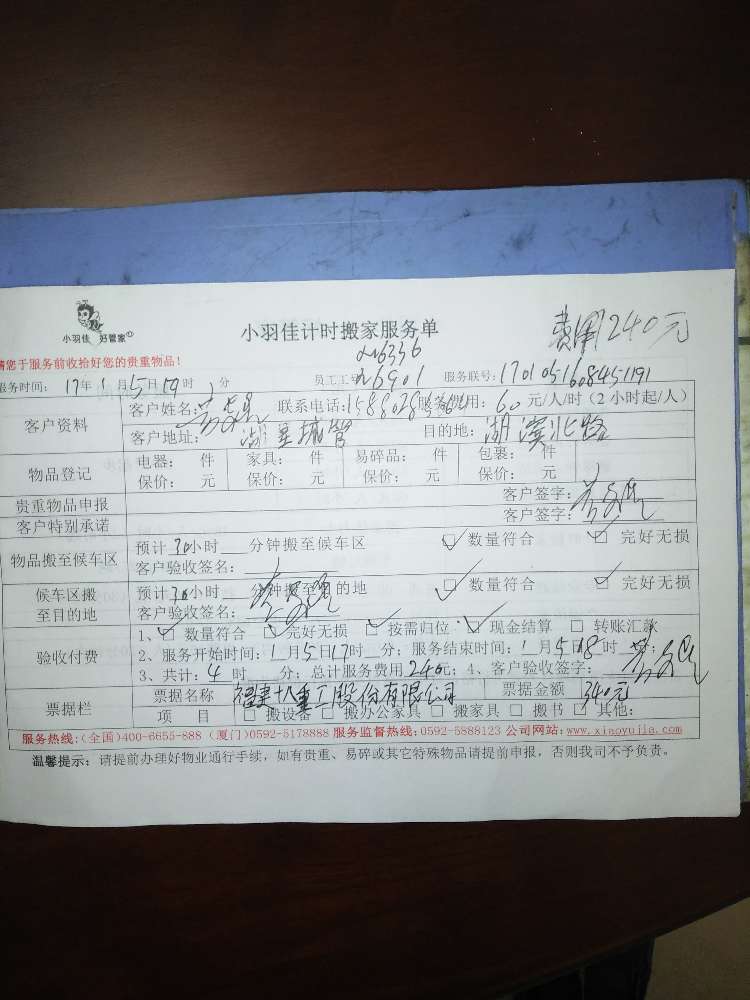 小羽佳 好管家
小羽佳计时搬家服务单
费用240元
请您于服务前收拾好您的贵重物品!
N6336
服务时间: 17年1月5日 时 分 员工工号 N6901 服务联号: 170105160845191
客户资料 客户姓名: 联系电话: 服务费用: 60元/人/时(2小时起/人)
客户地址: 湖里城管 目的地: 湖滨北路
物品登记 电器: 件 家具: 件 易碎品: 件 包裹: 件
保价: 元 保价: 元 保价: 元 保价: 元
贵重物品申报 客户签字:
客户特别承诺 客户签字:
物品搬至候车区 预计30小时 分钟搬至候车区 □ 数量符合 □ 完好无损
客户验收签名:
候车区搬至目的地 预计30小时 分钟搬至目的地 □ 数量符合 □ 完好无损
客户验收签名:
验收付费 1、□ 数量符合 □ 完好无损 □ 按需归位 □ 现金结算 □ 转账汇款
2、服务开始时间: 1月5日17时 分; 服务结束时间: 1月5日18时 分;
3、共计: 4时 分; 总计服务费用240元; 4、客户验收签字:
票据栏 票据名称 福建 重工股份有限公司 票据金额 340元
项 目 □ 搬设备 □ 搬办公家具 □ 搬家具 □ 搬书 □ 其他:
服务热线:(全国)400-6655-888 (厦门)0592-5178888 服务监督热线:0592-5888123 公司网站:www.xiaoyujia.com
温馨提示: 请提前办理好物业通行手续,如有贵重、易碎或其它特殊物品请提前申报,否则我司不予负责。